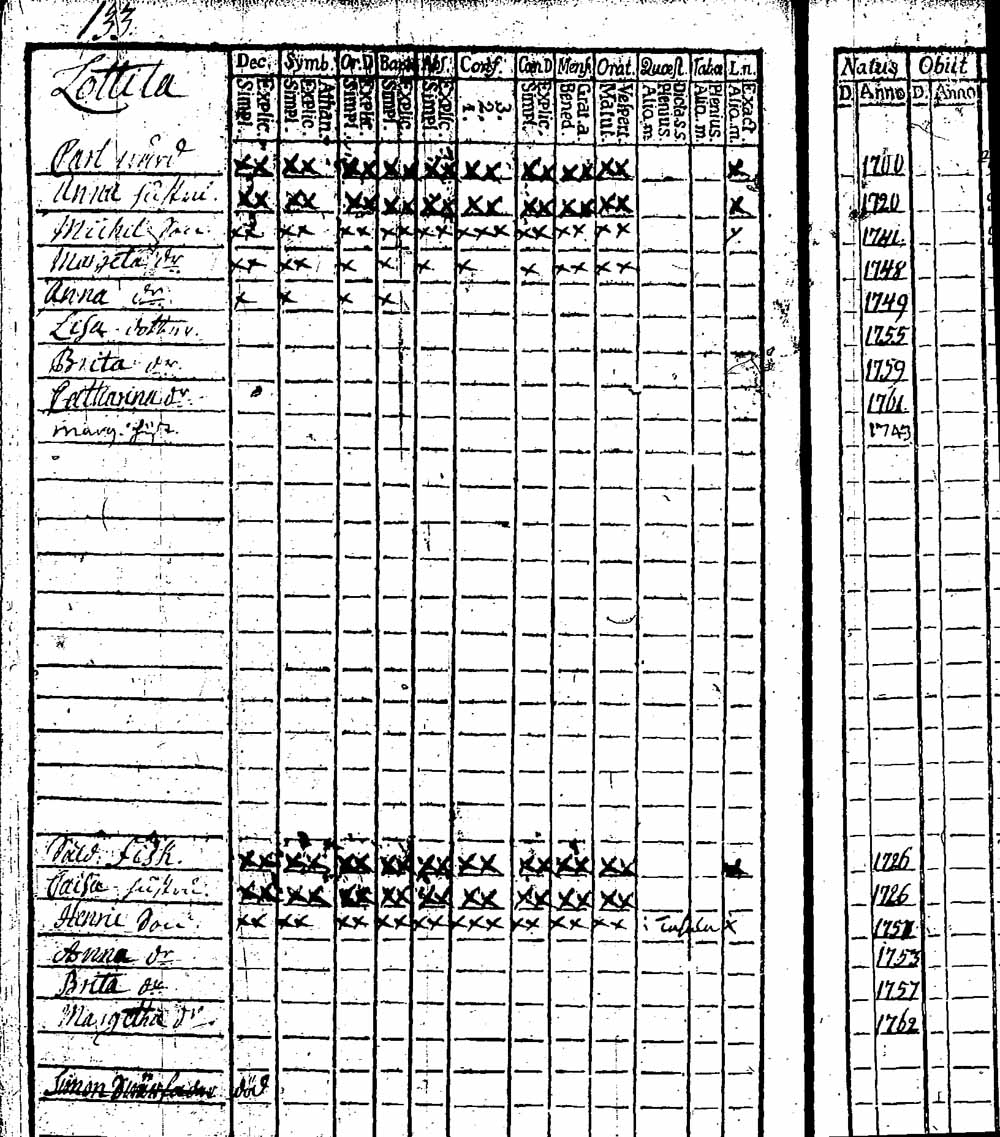 133.
Lottila
Dec. Symb. Or.D Bapt Abs. Conf. Cœn.D Mens. Orat. Quæst. Tabæ L.n. Natus Obiit
Explic. Simpl. Athan. Explic. Simpl. Explic. Simpl. Explic. Simpl. Explic. Simpl. 3. 2. 1. Explic. Simpl. Grat.a Bened Vespert. Matut. Dicta s s Plenius. Aliq.m Plenius. Aliq.m Exact Aliq.m D. Anno D. Anno
Carl xx xx xx xx xx xx xx xx xx x 1700
Anna hustru. xx xx xx xx xx xx xx xx xx x 1720
Michel Son xx xx xx xx xx xxx xx xx xx x 1741.
Margeta dr xx xx x x x x x xx xx 1748
Anna dr x x x x 1749
Lisa dotter. 1755
Brita dr. 1759
Catharina dr. 1761
marg. hust. 1743
Sold. Fisk. xx xx xx xx xx xx xx xx xx x 1726
Caisa hustru. xx xx xx xx xx xx xx xx xx 1726
Henric Son xx xx xx xx xx xxx xx xx xx x 1751
Anna dr 1753
Brita dr 1757
Margetha dr. 1762
Simon Swärfader död